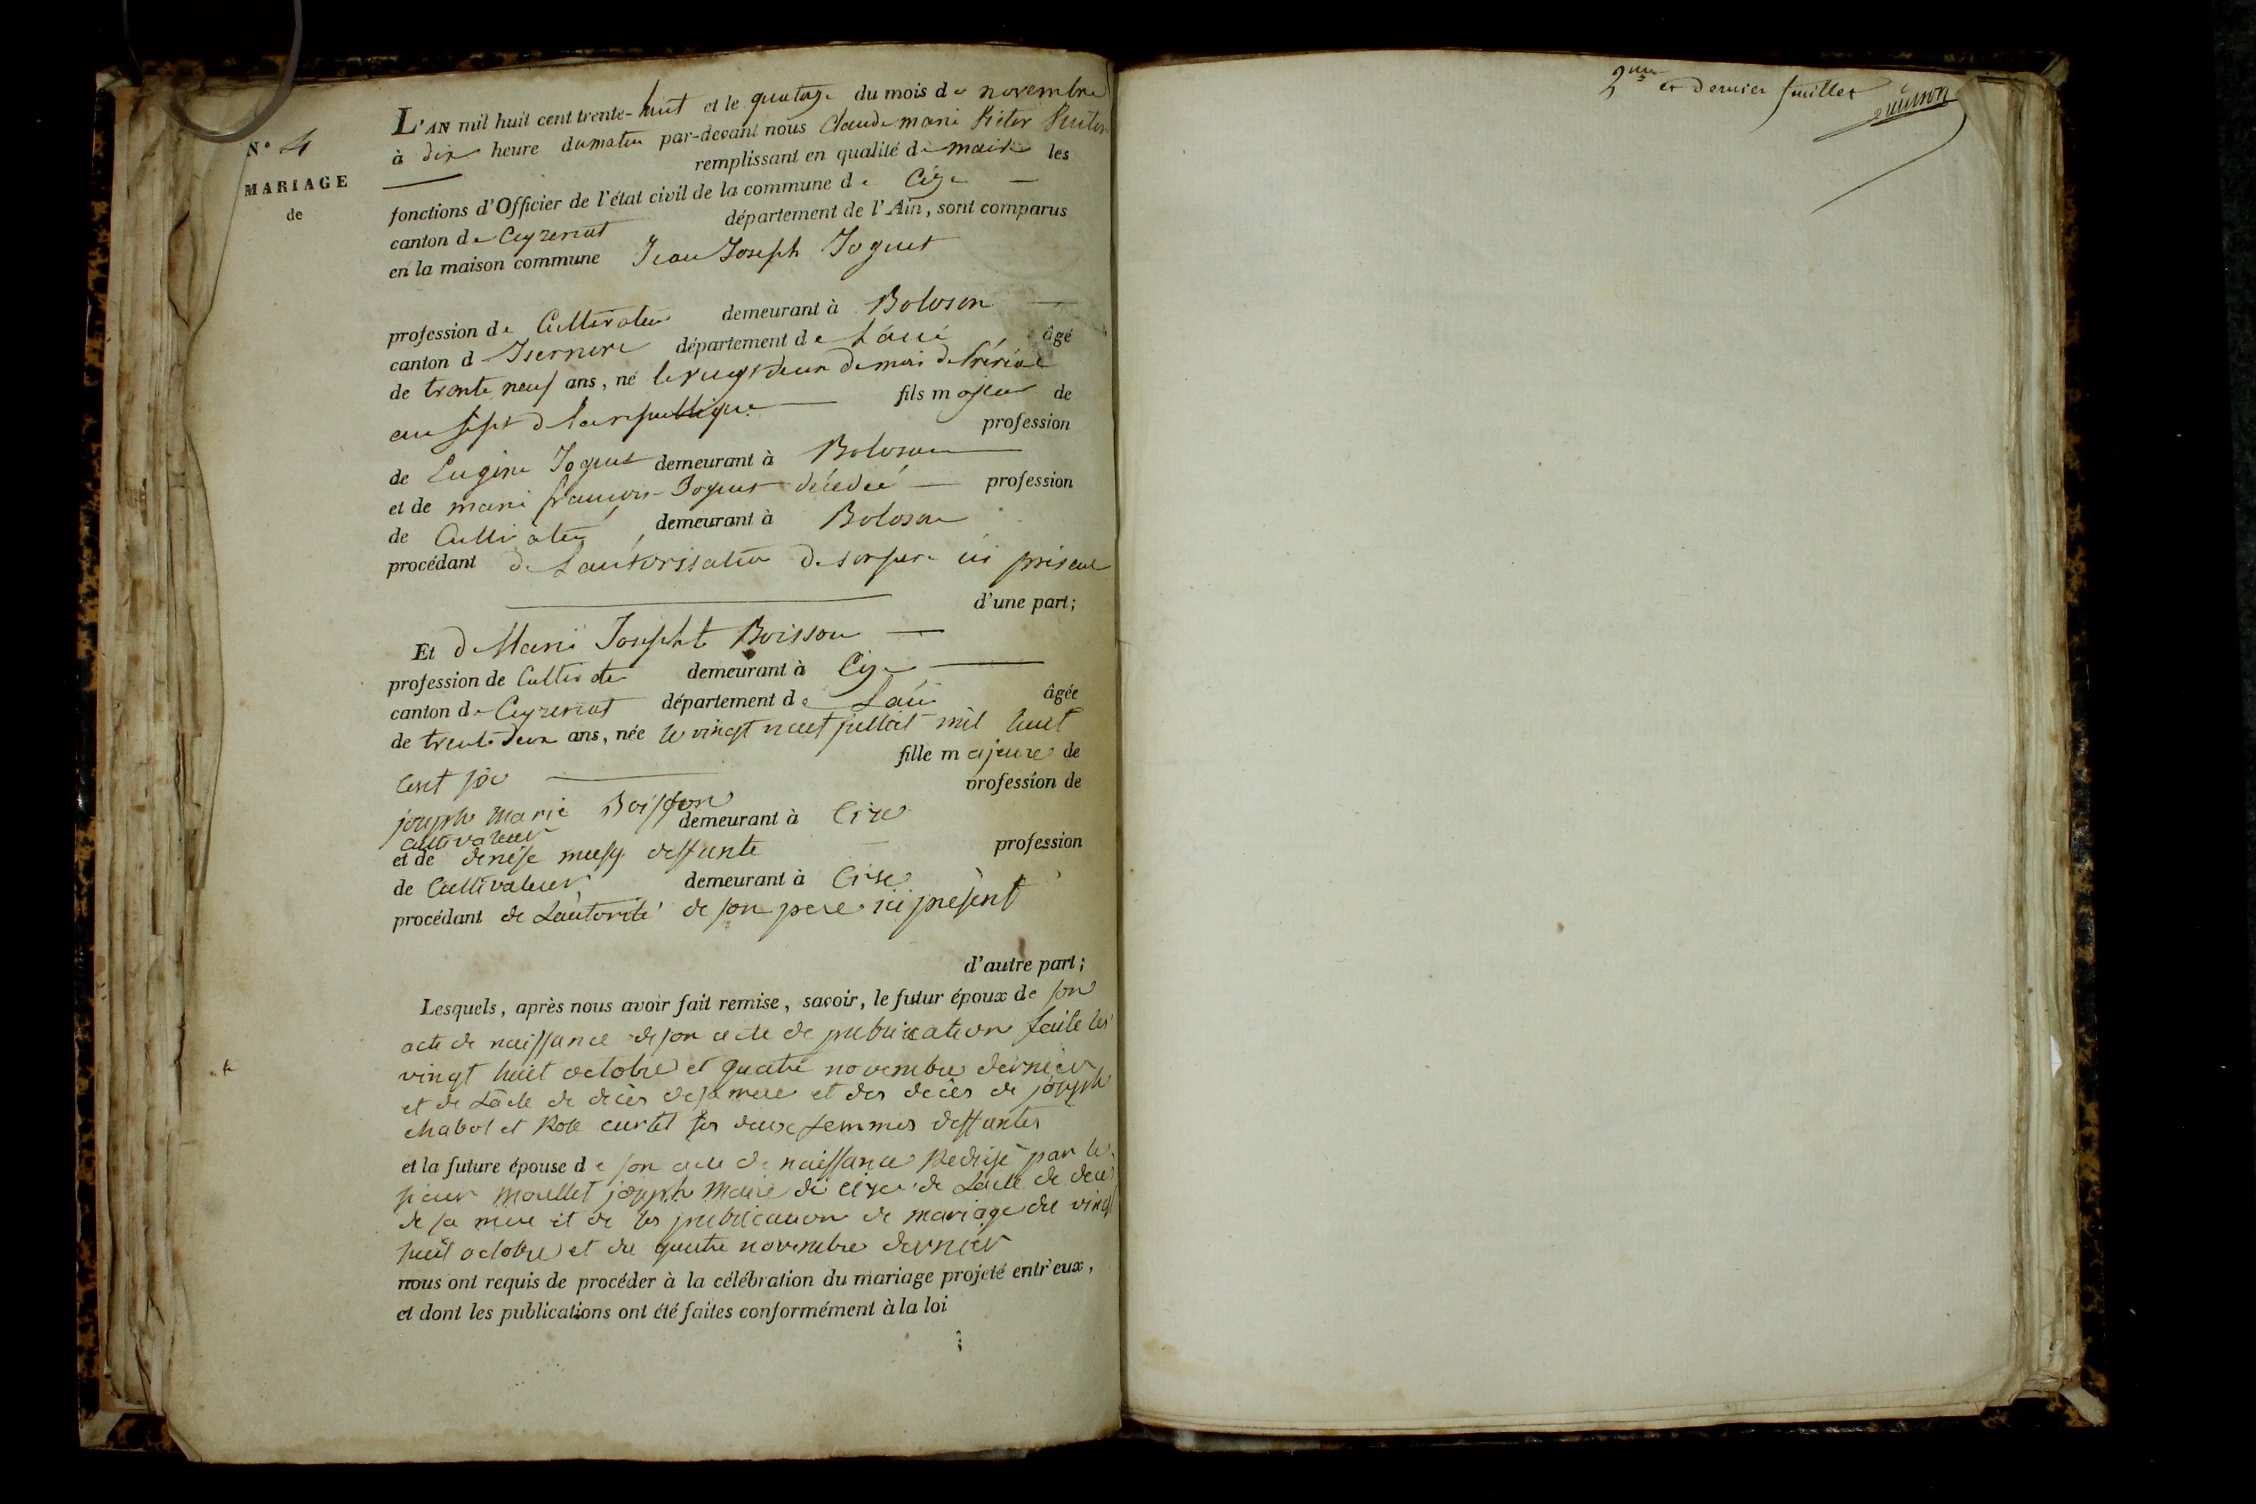 N° 4
MARIAGE
de
L'AN mil huit cent trente-huit et le quatorze du mois de novembre
à dix heure dumatin par-devant nous Claude marie
remplissant en qualité de maire les
fonctions d'Officier de l'état civil de la commune de Cize
canton de Ceyzeriat département de l'Ain, sont comparus
en la maison commune Jean Joseph Joguet
profession de Cultivateur demeurant à Boloson
canton d Isernore département de Lain âgé
de trente neuf ans, né le vingt deux du mois de Prérial
an sept de la republique fils majeur de
profession
de Eugène Joguet demeurant à Boloson
et de marie francois Joguet décédée profession
de Cultivateur demeurant à Boloson
procédant de Lautorisation de son pere ici présent
d'une part;
Et de Marie Josephte Boisson
profession de Cultivateur demeurant à Cize
canton de Ceyzeriat département de Lain âgée
de trente deux ans, née le vingt neuf juillet mil huit
cent six fille majeure de
profession de
joseph Marie Boisson
cultivateur demeurant à Cize
et de denise musy deffunte profession
de Cultivateur demeurant à Cize
procédant de Lautorité de son pere ici présent
d'autre part;
Lesquels, après nous avoir fait remise, savoir, le futur époux de son
acte de naissance de son acte de publication faite les
vingt huit octobre et quatre novembre dernier
et de Lacte de décès de sa mere et des décès de joseph
chabot et Rose curtet ses deux femmes deffuntes
et la future épouse de son acte de naissance Redigé par le
sieur Moullet joseph Maire de Cize de Lacte de deces
de sa mere et de les publication de mariage du vingt
huit octobre et du quatre novembre dernier
nous ont requis de procéder à la célébration du mariage projeté entr'eux,
et dont les publications ont été faites conformément à la loi
2me et dernier feuillet